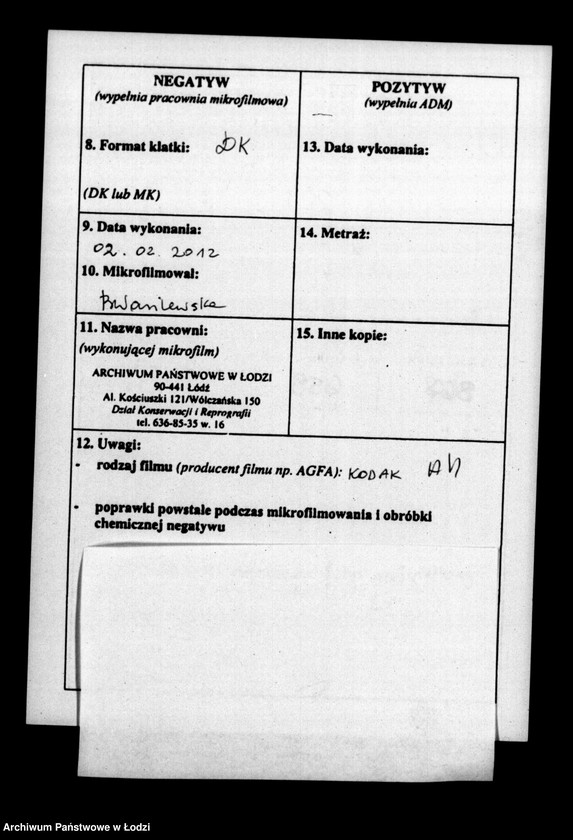 NEGATYW
(wypełnia pracownia mikrofilmowa)
8. Format klatki: DK
(DK lub MK)
9. Data wykonania:
02. 02. 2012
10. Mikrofilmował:
BWaniewska
11. Nazwa pracowni:
(wykonującej mikrofilm)
ARCHIWUM PAŃSTWOWE W ŁODZI
90-441 Łódź
Al. Kościuszki 121/Wólczańska 150
Dział Konserwacji i Reprografii
tel. 636-85-35 w. 16
POZYTYW
(wypełnia ADM)
13. Data wykonania:
14. Metraż:
15. Inne kopie:
12. Uwagi:
- rodzaj filmu (producent filmu np. AGFA): KODAK
- poprawki powstałe podczas mikrofilmowania i obróbki
chemicznej negatywu
Archiwum Państwowe w Łodzi